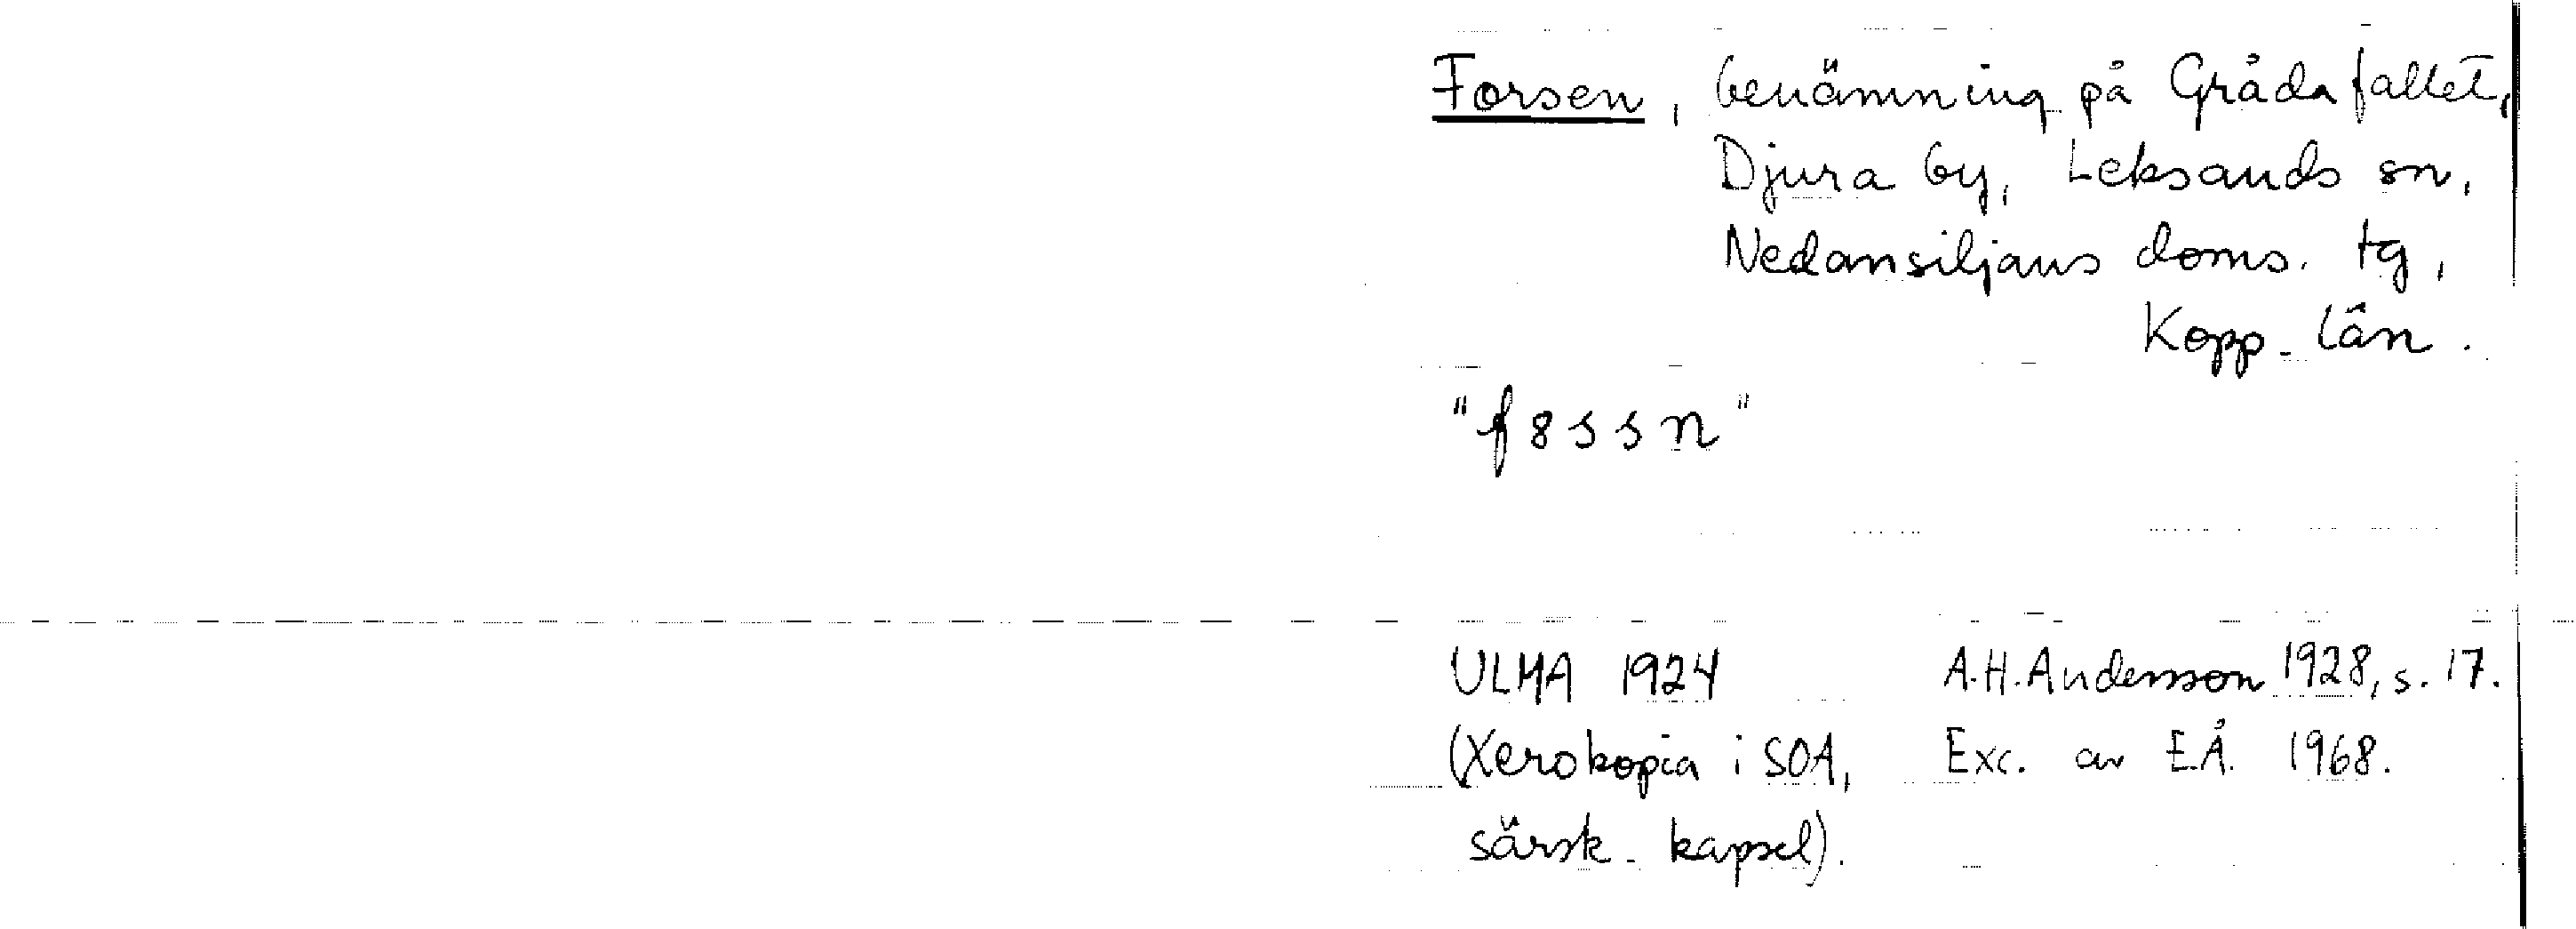 Forsen, benämning på Grådafallet,
Djura by, Leksands sn,
Nedansiljans doms. tg,
Kopp. län.
"f8ssn"
ULMA 1924 A.H. Andersson 1928, s. 17.
(Xerokopia i SOA, Exc. av E.Å. 1968.
särsk. kapsel).